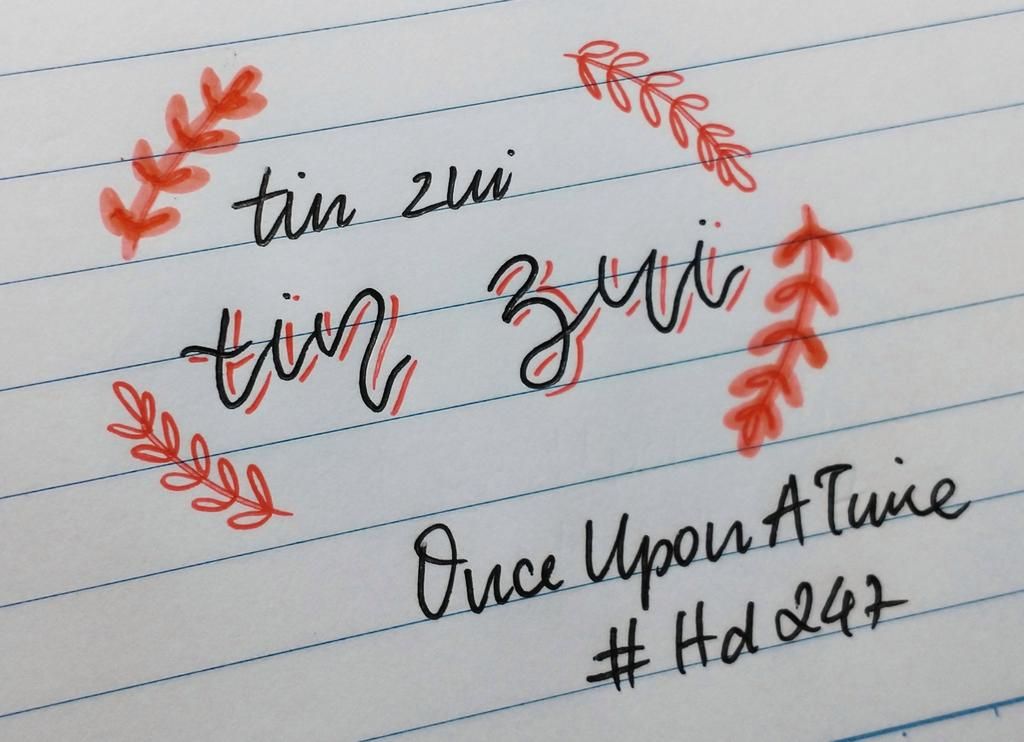 tin zui
tin zui
Once Upon A Time
# Hd 247